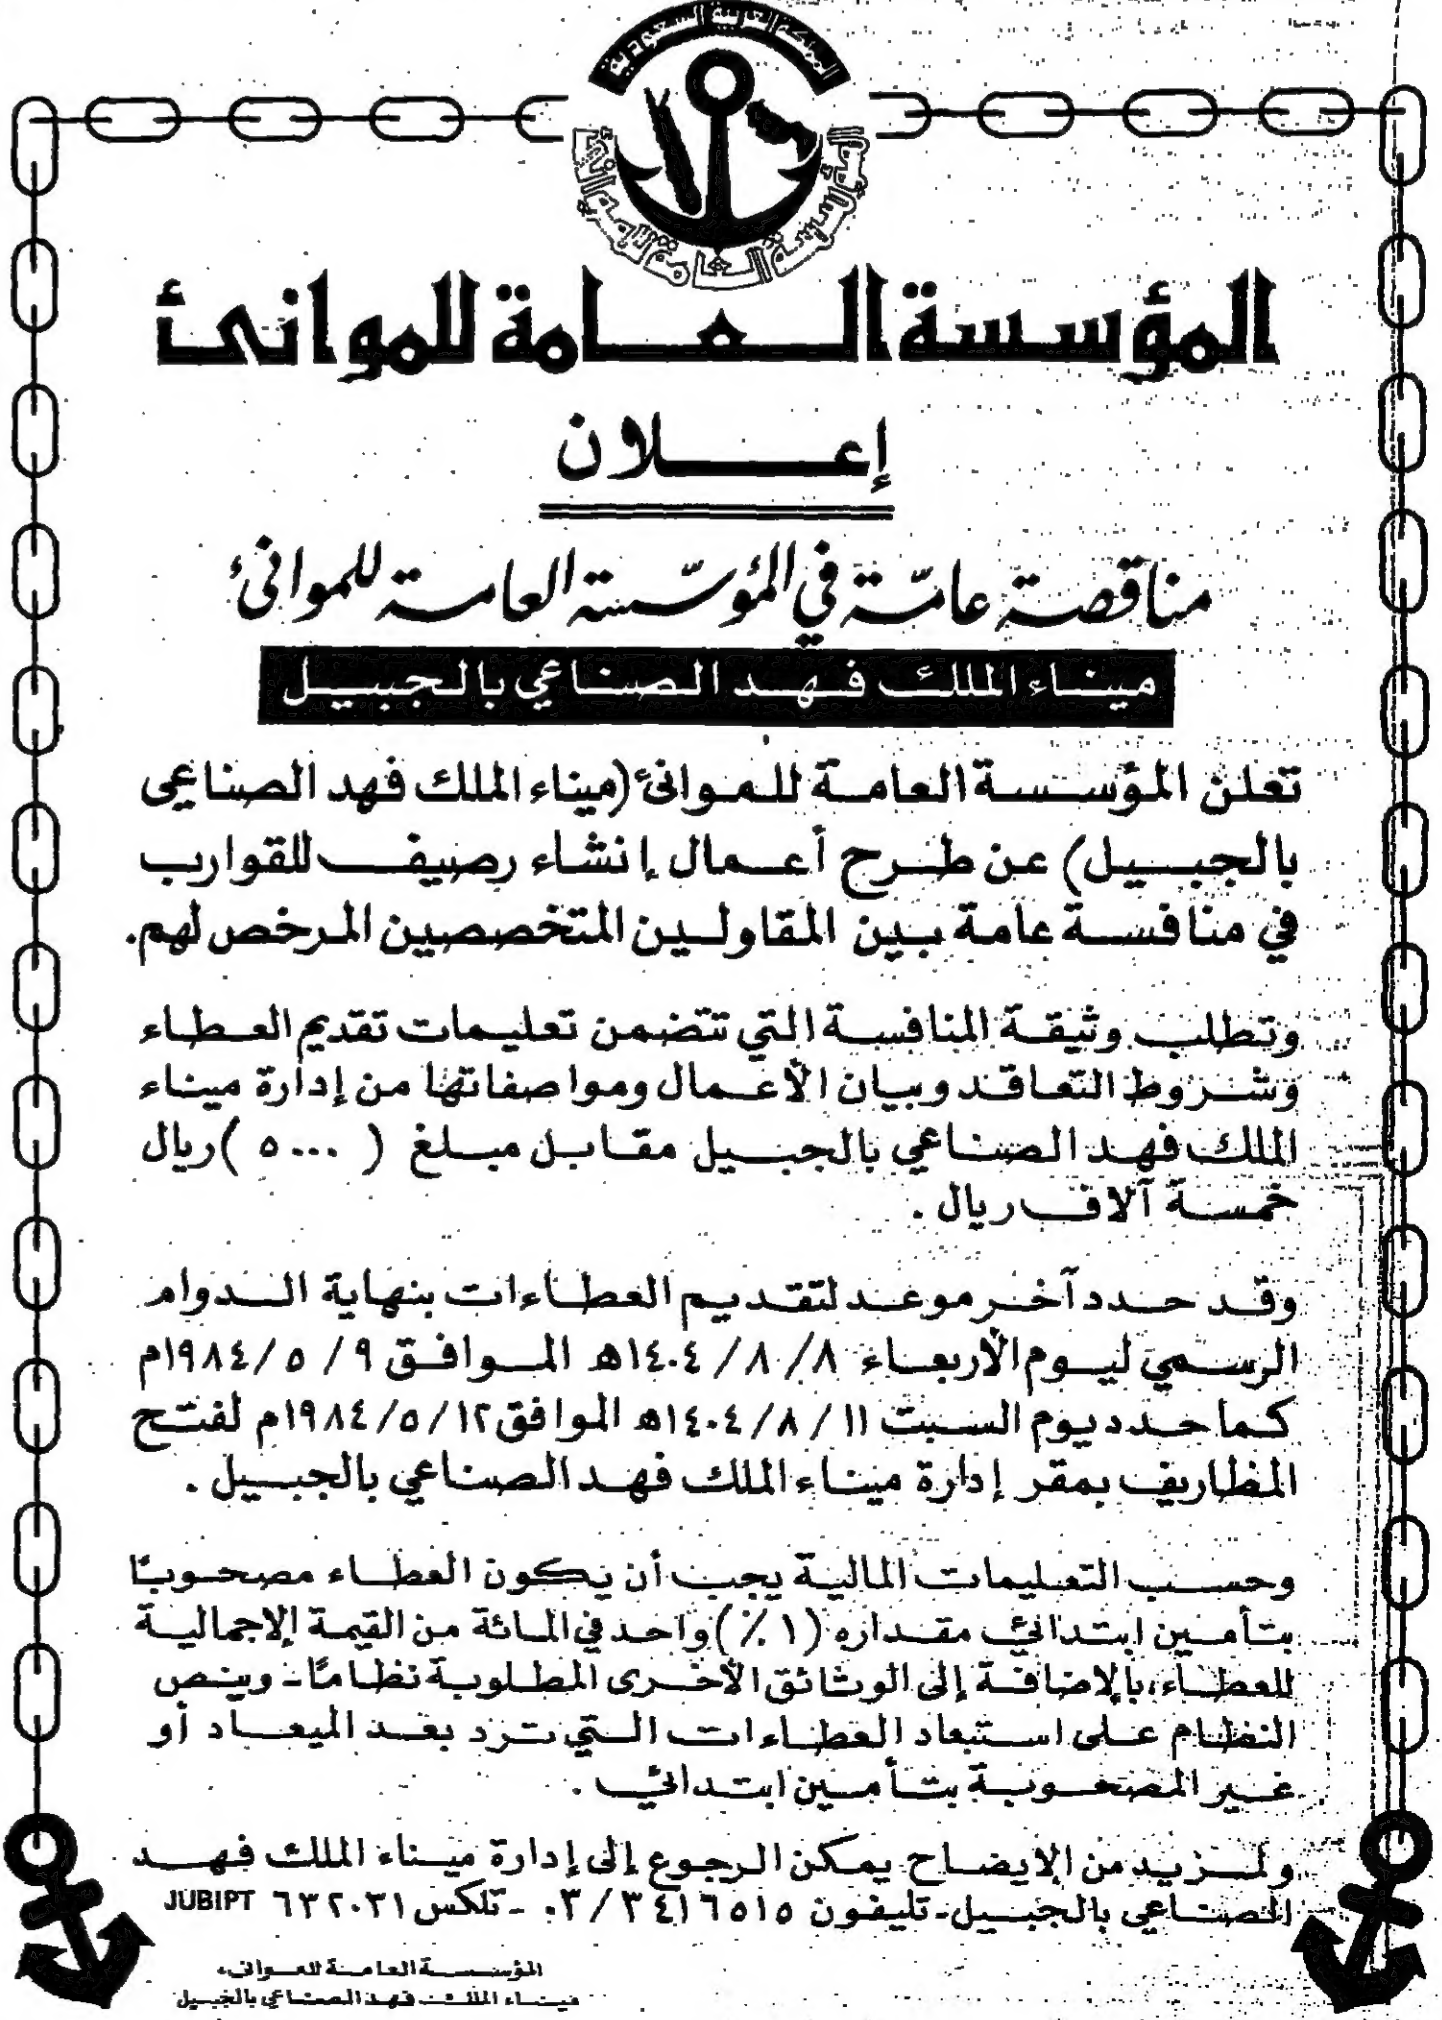 المملكة العربية السعودية
المؤسسة العامة للموانئ
المؤسسة العامة للموانئ
إعلان
مناقصة عامّة في المؤسّسة العامة للموانئ
ميناء الملك فهد الصناعي بالجبيل
تعلن المؤسسة العامة للموانئ (ميناء الملك فهد الصناعي
بالجبيل) عن طرح أعمال إنشاء رصيف للقوارب
في منافسة عامة بين المقاولين المتخصصين المرخص لهم.
وتطلب وثيقة المنافسة التي تتضمن تعليمات تقديم العطاء
وشروط التعاقد وبيان الأعمال ومواصفاتها من إدارة ميناء
الملك فهد الصناعي بالجبيل مقابل مبلغ ( ٥٠٠٠ ) ريال
خمسة آلاف ريال .
وقد حدد آخر موعد لتقديم العطاءات بنهاية الدوام
الرسمي ليوم الأربعاء ٨/ ٨/ ١٤٠٤هـ الموافق ٩/ ٥/ ١٩٨٤م
كما حدد يوم السبت ١١/ ٨/ ١٤٠٤هـ الموافق ١٢/ ٥/ ١٩٨٤م لفتح
المظاريف بمقر إدارة ميناء الملك فهد الصناعي بالجبيل .
وحسب التعليمات المالية يجب أن يكون العطاء مصحوبًا
بتأمين ابتدائي مقداره (١٪) واحد في المائة من القيمة الاجمالية
للعطاء، بالاضافة إلى الوثائق الأخرى المطلوبة نظامًا - وينص
النظام على استبعاد العطاءات التي ترد بعد الميعاد أو
غير المصحوبة بتأمين ابتدائي .
ولمزيد من الايضاح يمكن الرجوع إلى إدارة ميناء الملك فهد
الصناعي بالجبيل - تليفون ٠٣/٣٤١٦٥١٥ - تلكس ٦٣٢٠٣١ JUBIPT
المؤسسة العامة للموانىء
ميناء الملك فهد الصناعي بالجبيل